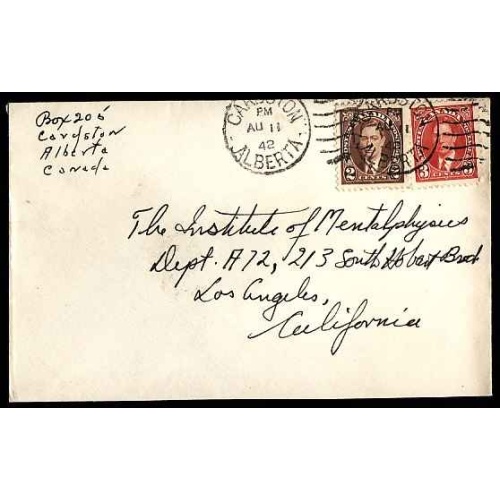 Box 205
Cardston
Alberta
Canada
CARDSTON
PM
AU 11
42
ALBERTA
2 CENTS
3 CENTS
The Institute of Mentalphysics
Dept. A72, 213 South Hobart Blvd
Los Angeles,
California